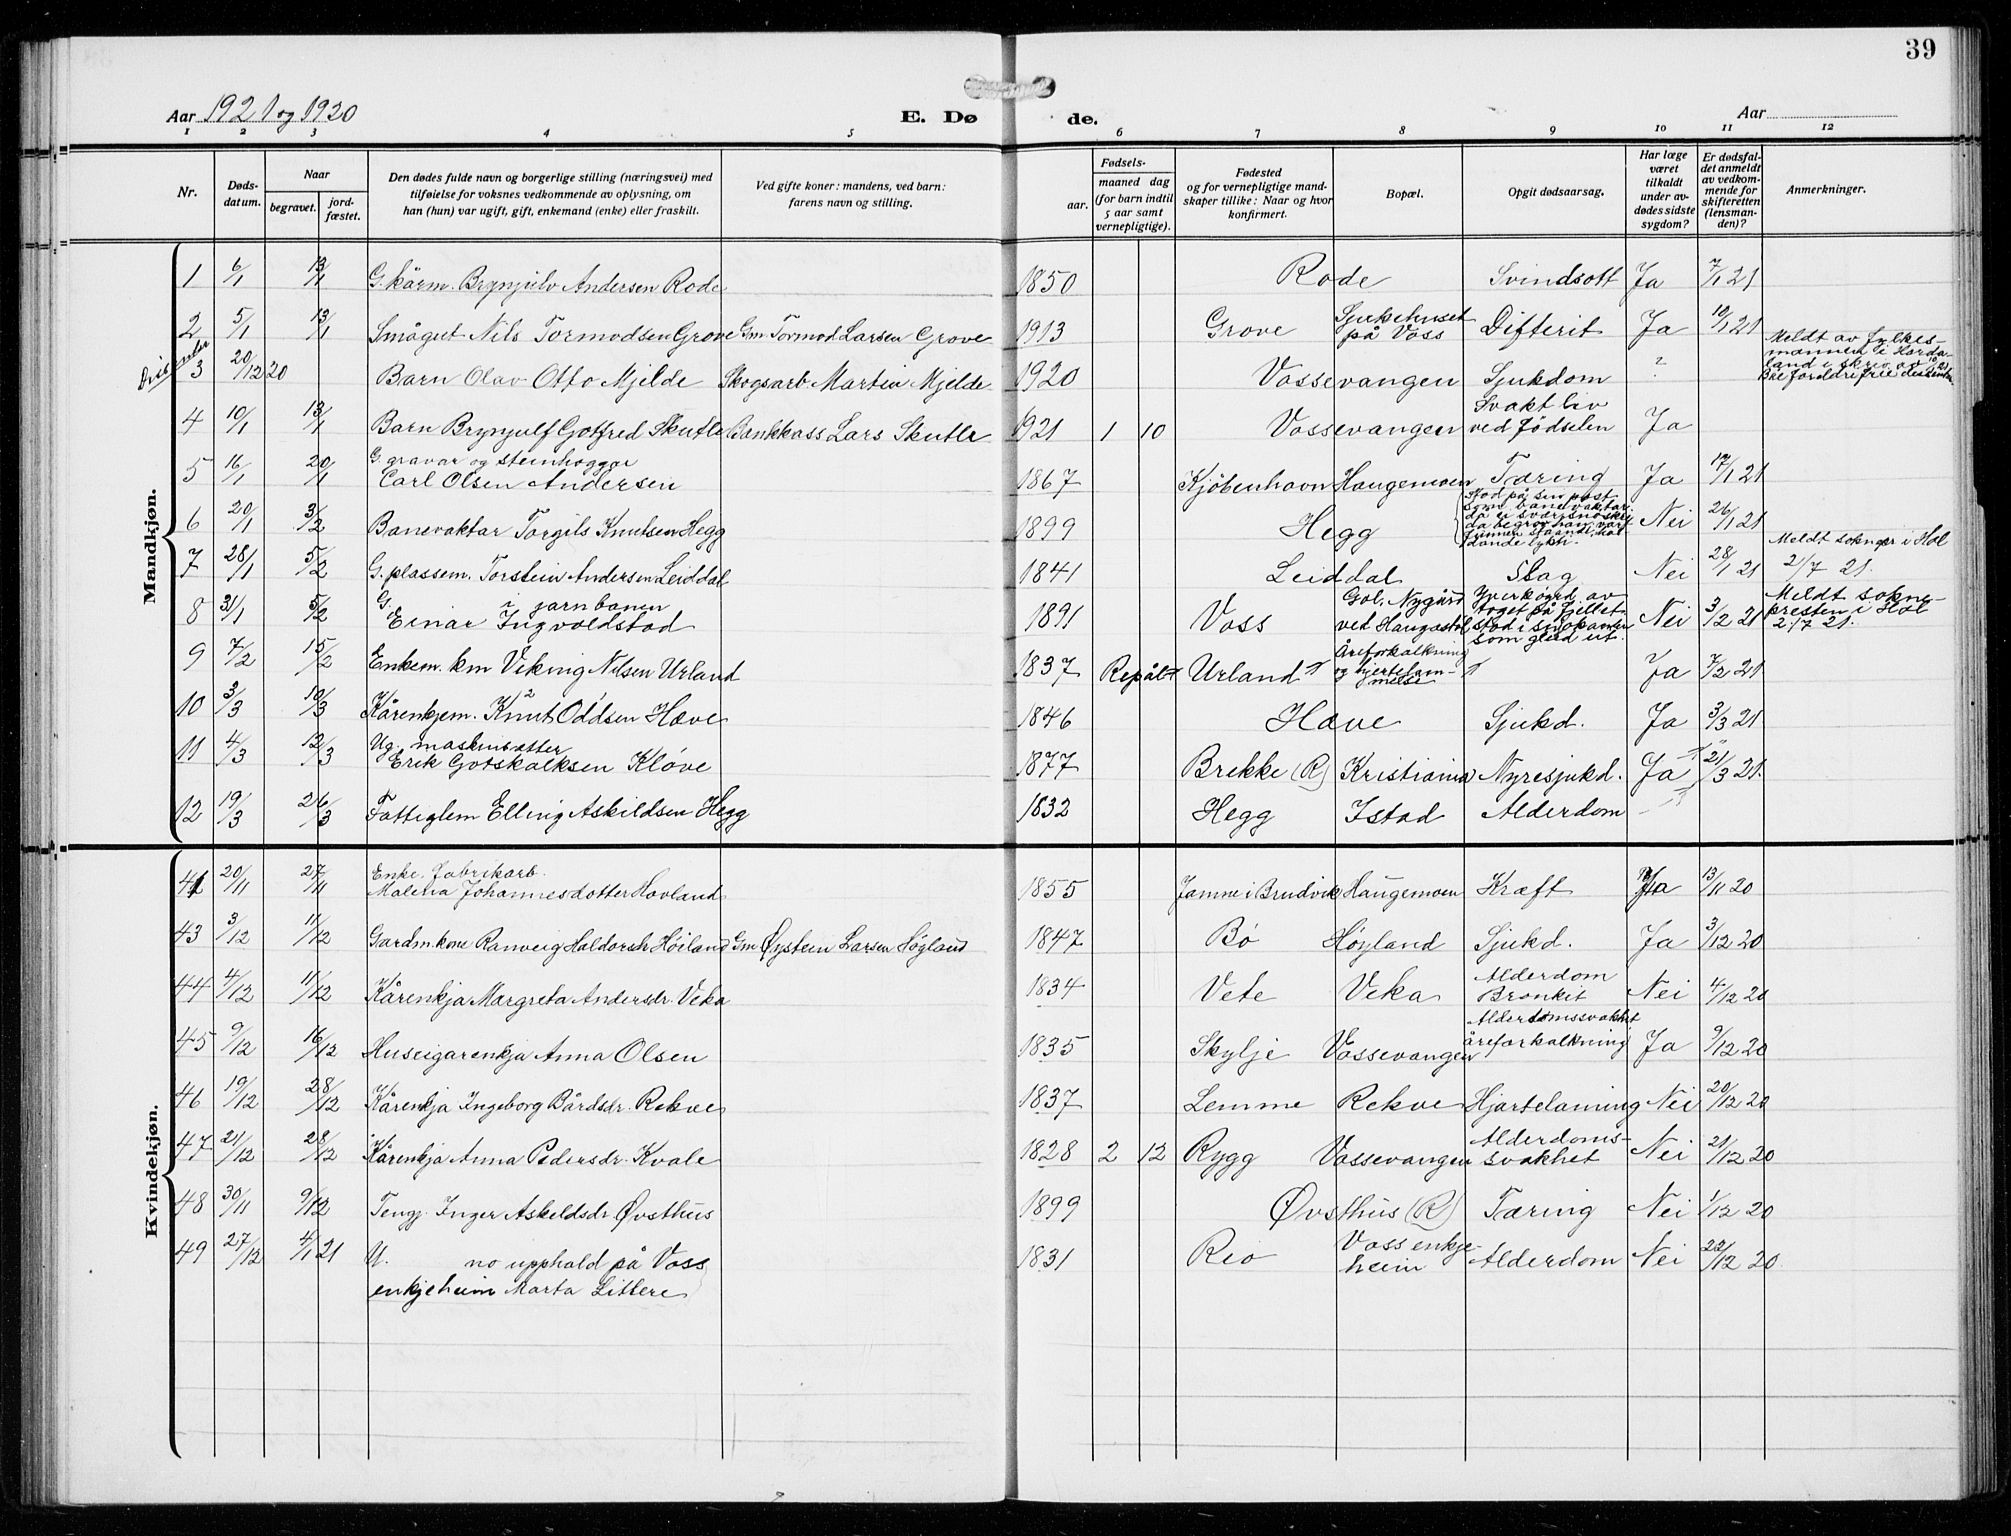 39
Aar 1921 og 1920 E. Døde. Aar
1 2 3 4 5 6 7 8 9 10 11 12
Nr. Døds-datum. Naar begravet. jord-fæstet. Den dødes fulde navn og borgerlige stilling (næringsvei) med tilføielse for voksnes vedkommende av oplysning, om han (hun) var ugift, gift, enkemand (enke) eller fraskilt. Ved gifte koner: mandens, ved barn: farens navn og stilling. Fødsels- aar. maaned dag (for barn indtil 5 aar samt vernepligtige). Fødested og for vernepligtige mandskaper tillike: Naar og hvor konfirmert. Bopæl. Opgit dødsaarsag. Har læge været tilkaldt under avdødes sidste sygdom? Er dødsfaldet anmeldt av vedkommende for skifteretten (lensmanden)? Anmerkninger.
Mandkjøn.
1 6/1 13/1 G. kårm. Brynjulv Andersen Rode 1850 Rode Svindsott Ja 7/1 21
2 5/1 13/1 Smågut Nils Tormodsen Grove Gm. Tormod Larsen Grove 1913 Grove Sjukehuset på Voss Difterit Ja 10/1 21
3 20/12 20 Barn Olav Otto Mjelde Skogsarb. Martin Mjelde 1920 Vossevangen Sjukdom ? Meldt av fylkesmannen i Hordaland i skriv av
4 10/1 13/1 Barn Brynjulf Gotfred Skutle Bankkass Lars Skutle 1921 1 10 Vossevangen Svakt liv ved fødselen Ja
5 16/1 20/1 G. gravar og steinhoggar Carl Olsen Andersen 1867 Kjöbenhavn Haugemoen Tæring Ja 17/1 21
6 20/1 3/2 Banevaktar Torgils Knutsen Hegg 1899 Hegg Stod på sin post som banevaktar Nei 26/1 21
7 28/1 5/2 G. plassem. Torstein Andersen Leiddal 1841 Leiddal Slag Nei 28/1 21 Meldt soknepr i Hol 2/7 21.
8 31/1 5/2 G. i jarnbanen Einar Ingvoldstad 1891 Voss Gol, Nygård ved Haugastøl Yverkøyrd av toget på fjellet Nei 3/2 21 Meldt soknepresten i Hol 2/7 21.
9 7/2 15/2 Enkem. km Viking Nilsen Urland 1837 Repål Urland Åreforkalkning og hjertelammelse Ja 7/2 21
10 3/3 10/3 Kårenkjem. Knut Oddsen Hæve 1846 Hæve Sjukd. Ja 3/3 21
11 4/3 12/3 Ug. maskinsetter Erik Gotskalksen Kløve 1877 Brekke (R) Kristiania Nyresjukd. Ja 21/3 21.
12 19/3 26/3 Fattiglem Elling Askildsen Hegg 1832 Hegg Istad Alderdom
Kvindekjøn.
20/11 27/11 Enke. fabrikarb. Malena Johannesdotter Hovland 1855 Jamne i Brudvik Haugemoen Kræft Ja 13/11 20
43 3/12 11/12 Gardm.kone Ranveig Haldorsdr Höiland Gm Øystein Larsen Höyland 1847 Bö Höyland Sjukd. Ja 3/12 20
44 4/12 11/12 Kårenkja Margreta Andersdr. Veka 1834 Vete Veka Alderdom Bronkit Nei 4/12 20
45 9/12 16/12 Huseigarenkja Anna Olsen 1835 Skylje Vossevangen Alderdomssvakhet åreforkalkning Ja 9/12 20
46 19/12 28/12 Kårenkja Ingeborg Bårdsdr. Rekve 1837 Lemme Rekve Hjartelaming Nei 20/12 20
47 21/12 28/12 Kårenkja Anna Pedersdr. Kvale 1828 2 12 Rygg Vossevangen Alderdoms-svakhet Nei 21/12 20
48 30/11 9/12 Tengj. Inger Askeldsdr. Øvsthus 1899 Øvsthus (R) Tæring Nei 1/12 20
49 27/12 4/1 21 U. no upphald på Voss enkjeheim Marta Littere 1831 Reo Voss enkjeheim Alderdom Nei 22/12 20